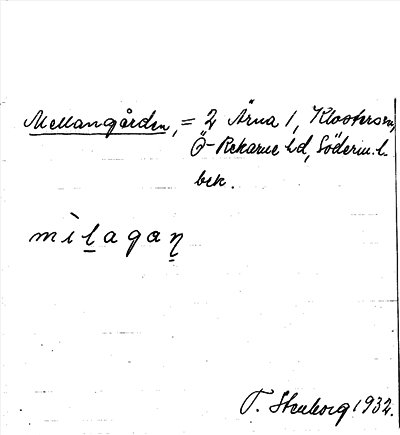 Mellangården, = 2 Ärna 1, Klosters sn,
Ö-Rekarne hd, Söderm. l.
bek.
mìlagaṉ
T. Stenborg 1932.